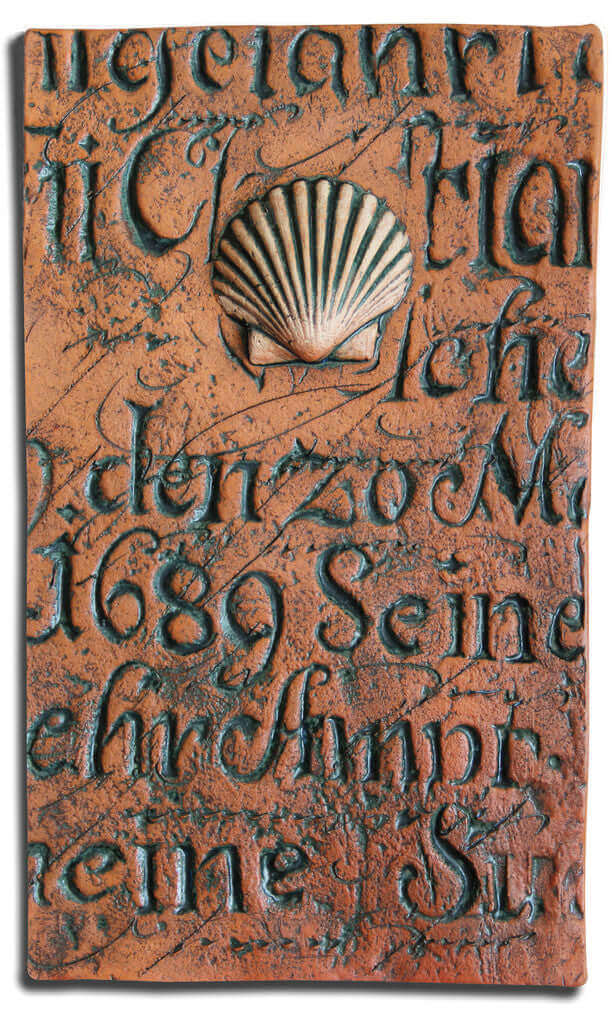 ngefahrt
n Ch tian
iche
. den 20 Ma
1689 Seine
ehr Ampt.
eine Su